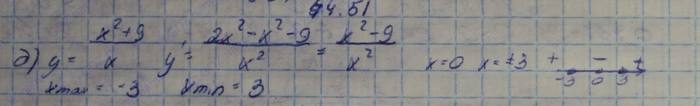 44.51
д) y = x²+9/x y' = 2x²-x²-9/x² = x²-9/x² x=0 x=±3 + - + -3 0 3
xmax = -3 xmin = 3